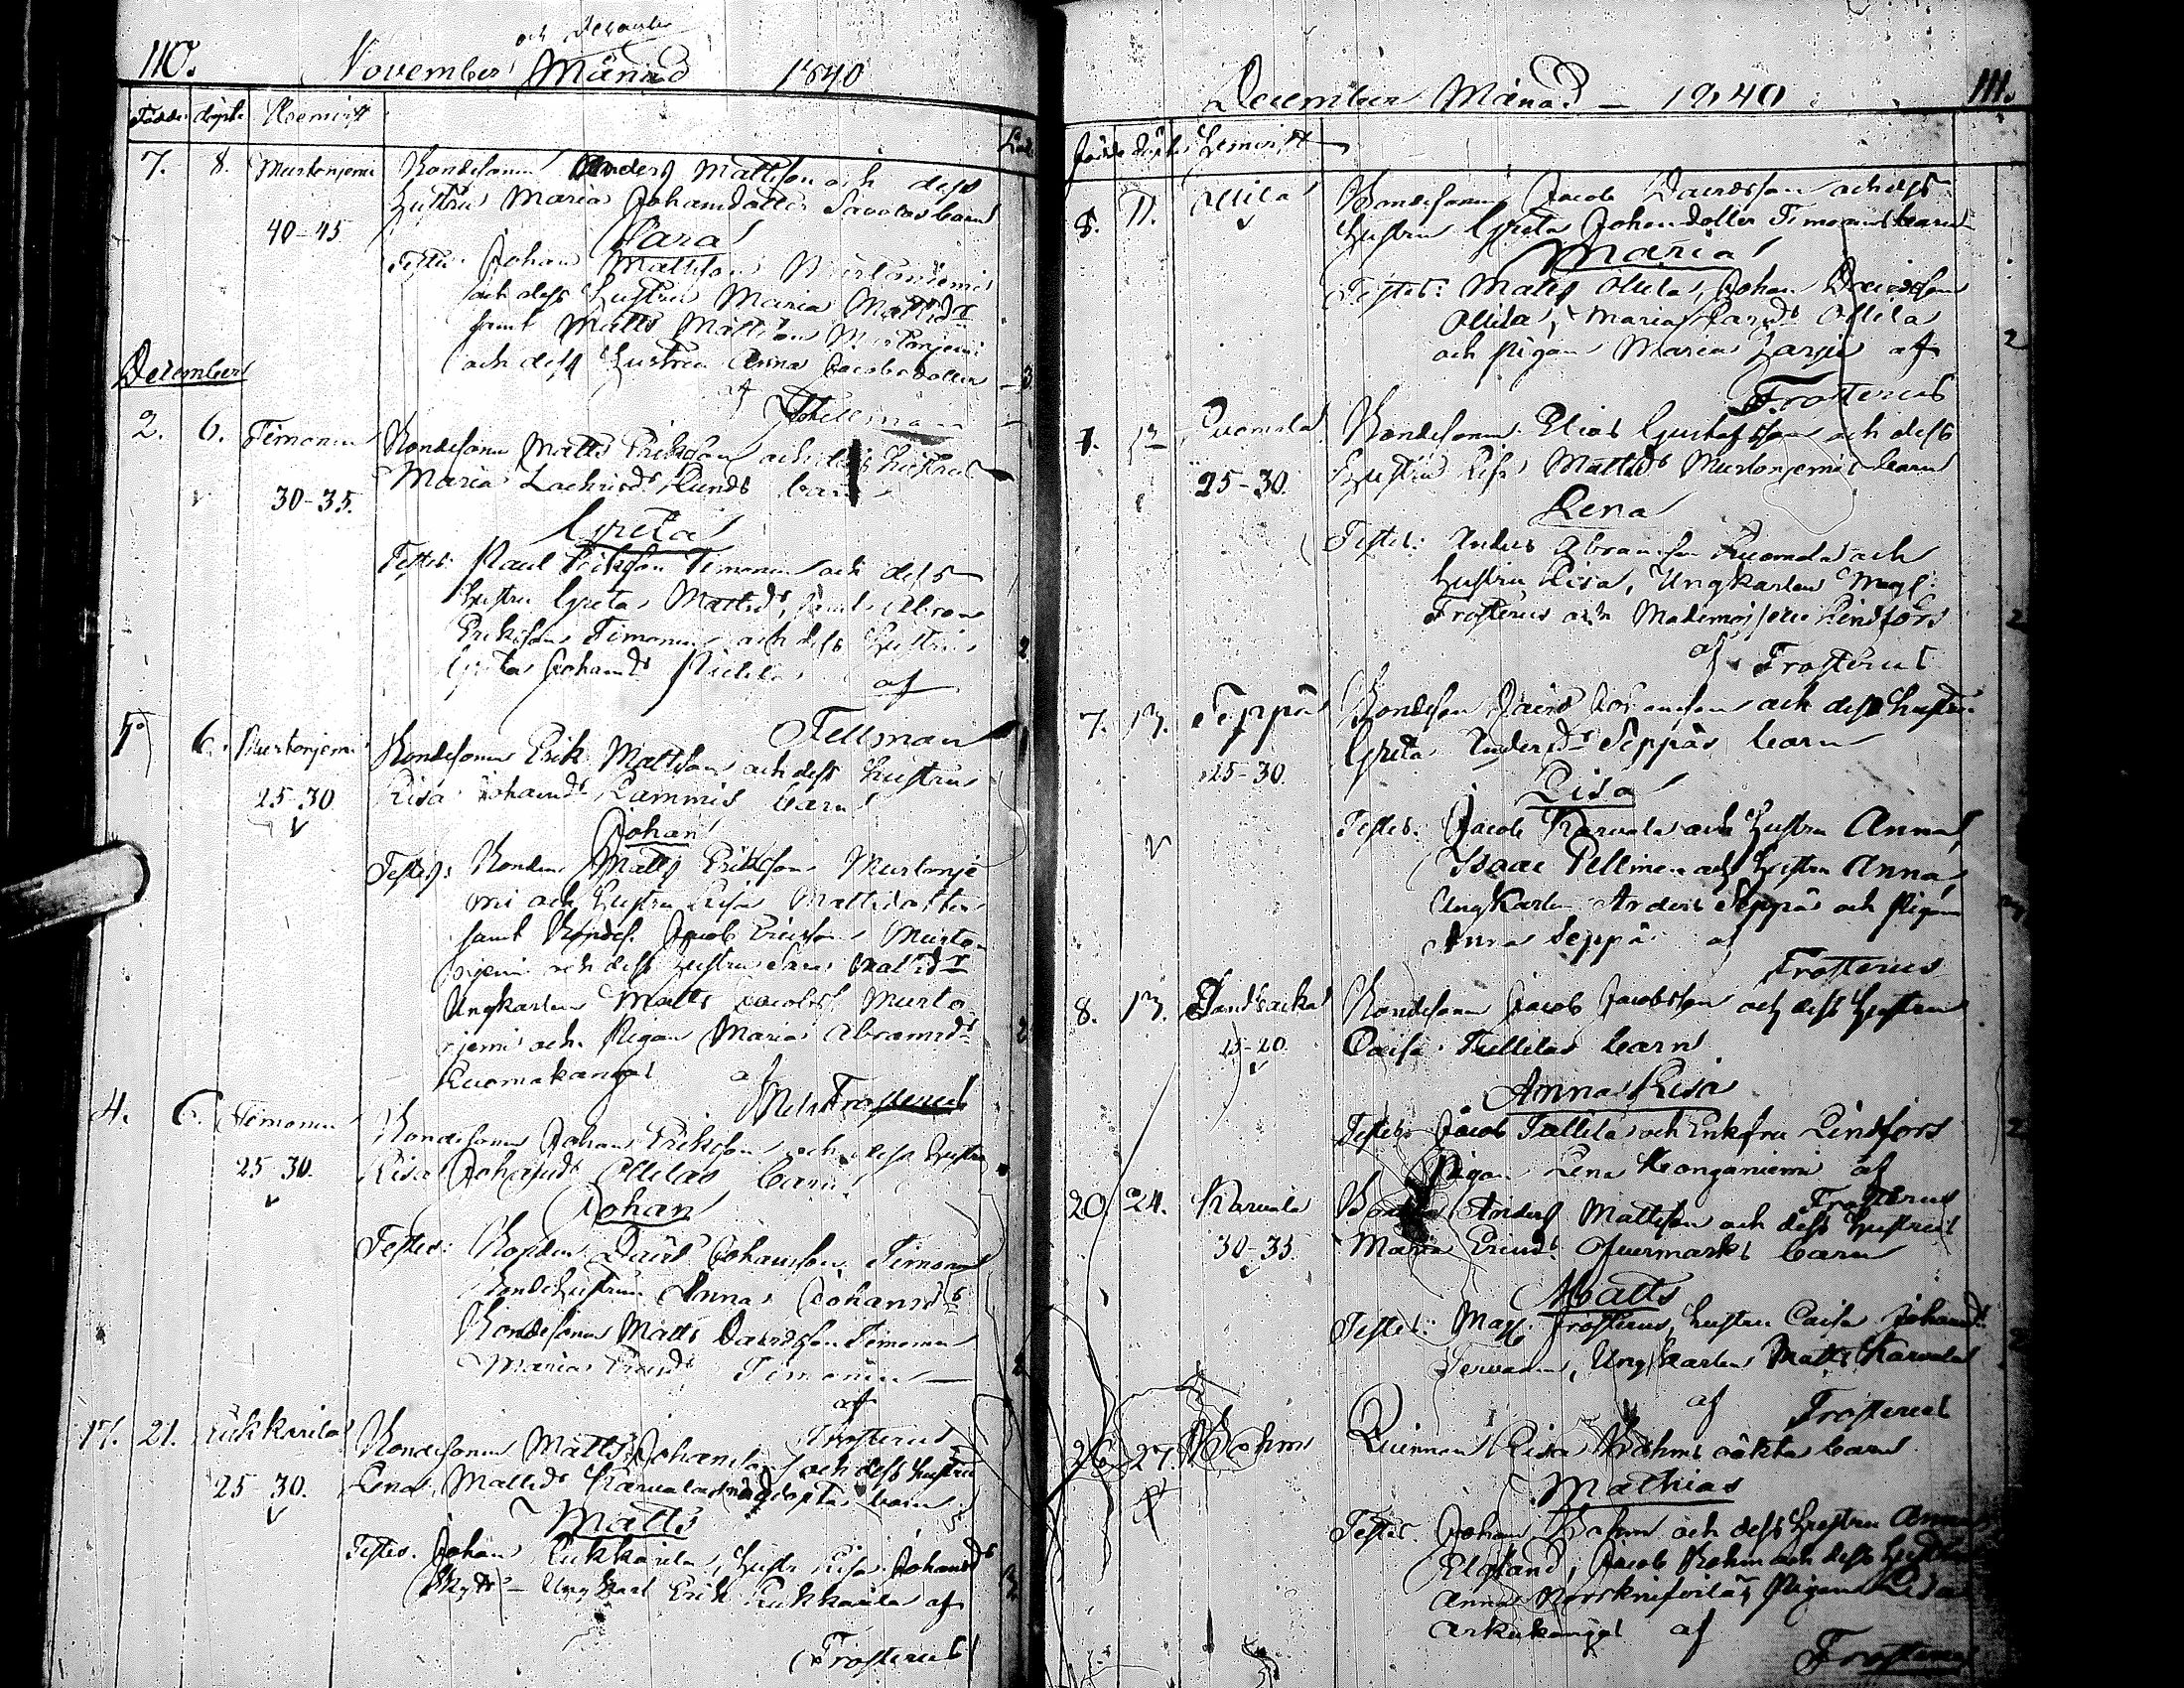 110.
och December
November Månad 1840
Födde döpte Hemvist
7. 8. Murtonjemi Bondesonen Anders Mattsson och dess
Hustru Maria Johansdotter Savolas barn
40-45 Sara
Testes: Johan Mattsson Murtoniemi
och dess Hustru Maria Mattsdr
samt Matts Mattsson Murtonjemi
och dess Hustru Anna Jacobsdotter 3
af
Fellman
December
2. 6. Timonen Bondesonen Matts Eriksson och dess hustrus
Maria Zachrisdr Lunds barn
30-35. Greta
Testes: Paul Eriksson Timonen och dess
Hustru Greta Mattsdr, samt Abram
Eriksson Timonen och dess Hustru
Greta Johansdr 2
af
Fellman
6. Murtonjemi Bondesonen Erik Mattsson och dess hustrus
25-30 Lisa Johansdr Lammis barn
Johan
Testes: Bonden Matts Eriksson Murtonje
mi och Hustru Lisa Mattsdotter
samt Bondes. Jacob Ericsson Murto
njemi och dess hustru Sara Mattsdr
Ungkarlen Matts Jacobss. Murto
njemi och Pigan Maria Abramsdr 2
Kuomakangas af
Frosterus
4. 6. Timonen Bondesonen Johan Eriksson och dess Hustru
25-30. Lisa Johansdr Ollilas barn
Johan
Testes: Bonden David Johansson Timonen
Bondehustrun Anna Johansdr
Bondesonen Matts Davidsson Timonen
Maria Ericsdr Timonen
af
Frosterus
17. 21. Kukkarila Bondesonen Matts Johansson och dess hustru
25-30. Lena Mattsdr Karvalas nöddöpta barn
Matts
Testes. Johan Kukkarila, Hustr. Lisa Johansdr
Ungkarl Erik Kukkarila af
Frosterus
December Månad — 1840 111.
Födde döpte Hemvist
8. 11. Ollila Bondesonen Jacob Davidsson och dess
hustru Greta Johansdotter Timonens barn
Maria
Testes: Matts Ollila, Johan Davidsson
Ollila, Maria Larsdr Ollila
och pigan Maria Harju af 2
Frosterus
7. 12 Luomala Bondesonen Elias Gustafsson och dess
25-30. Hustru Lisa Mattsdr Murtonjemis barn
Lena
Testes: Anders Abramsson Luomala och
hustru Lisa, Ungkarlen Mag.
Frosterus och Mademoiselle Lindfors 2
af Frosterus
7. 13. Seppä Bondeson David Johansson och dess hustru
25-30. Greta Andersdr Seppäs barn
Lisa
Testes: Jacob Karvala och Hustru Anna,
Isaac Pellinen och Hustru Anna,
Ungkarlen Anders Seppä och Pigan
Anna Seppä af
Frosterus
8. 13. Sandbacka Bondesonen Jacob Jacobsson och dess hustru
15-20. Caisa Tullilas barn
Anna Lisa
Testes: Jacob Tullila och Enkefru Lindfors 2
Pigan Lena Konganiemi af
Frosterus
20 24. Karvala Anders Mattsson och dess hustrus
30-35. Maria Ericsdr Ofvermarks barn
Matts
Testes: Mag. Frosterus, hustru Caisa Johansdr 2
Tervonen, Ungkarlen Matts Karvala
af Frosterus
26 27. Böhm Quinnan Lisa Böhms oäkta barn
Mathias
Testes Johan Böhm och dess Hustru Anna
Elgland, Jacob Böhm och dess Hustru
Anna Pigan Lisa
Arkukangas af
Frosterus